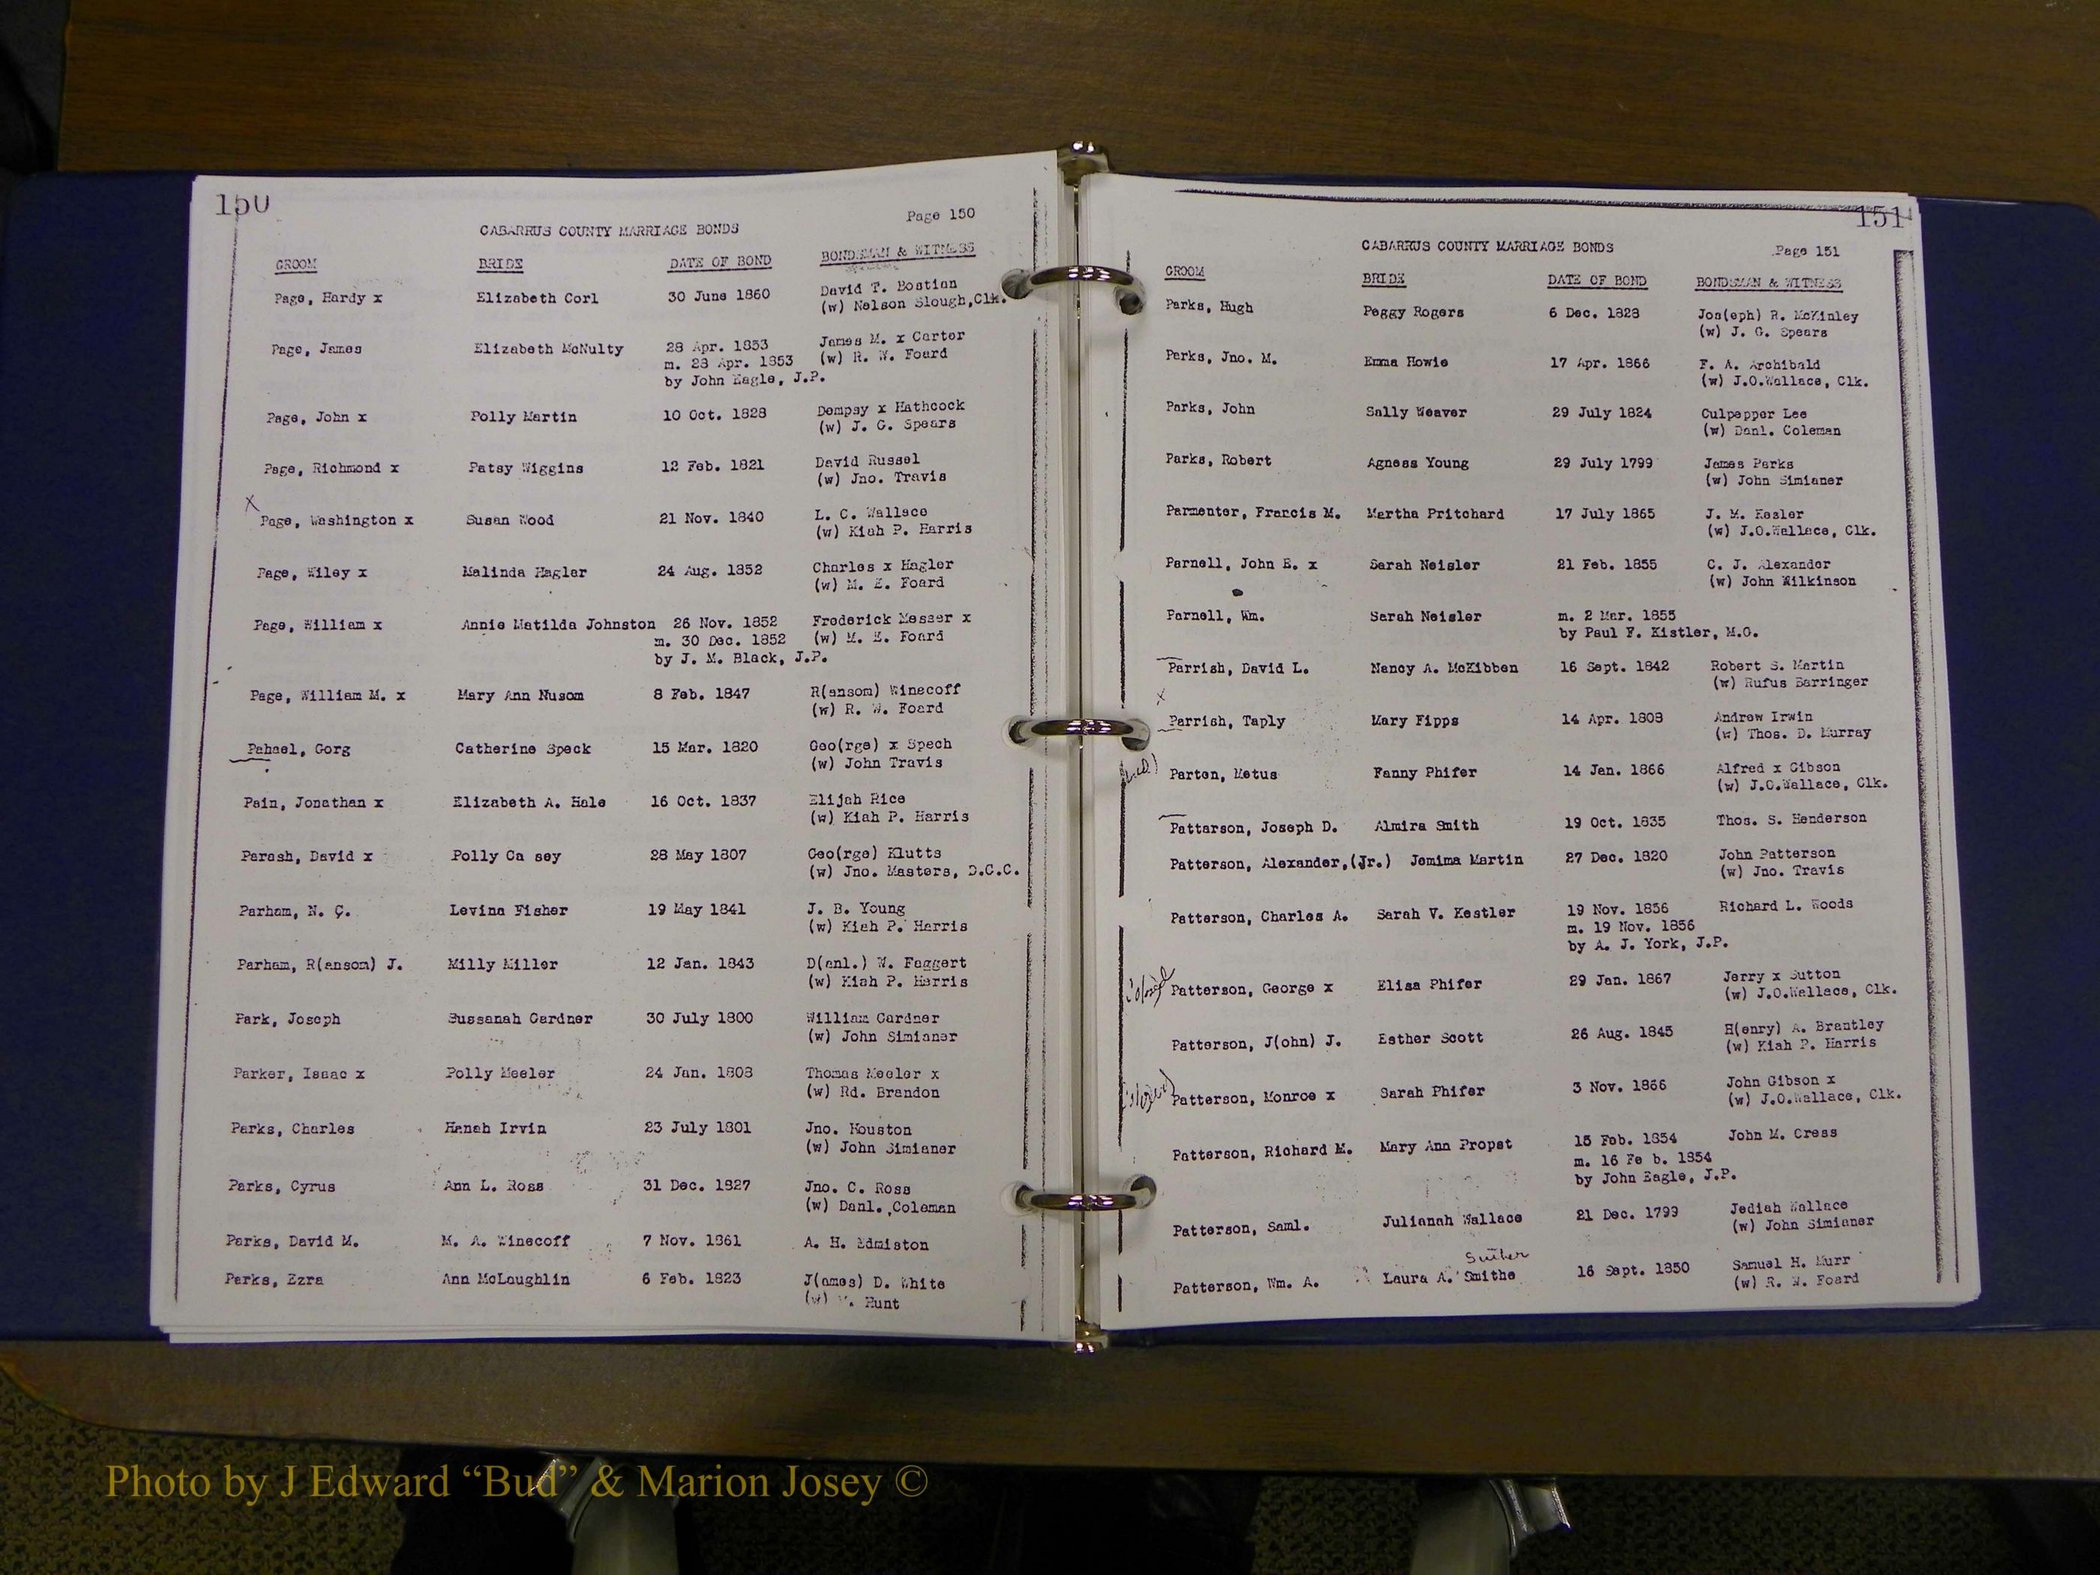 150
Page 150
CABARRUS COUNTY MARRIAGE BONDS
GROOM BRIDE DATE OF BOND BONDSMAN & WITNESS
Page, Hardy x Elizabeth Corl 30 June 1860 David T. Bostian
(w) Nelson Slough, Clk.
Page, James Elizabeth McNulty 28 Apr. 1853 James M. x Carter
m. 28 Apr. 1853 (w) R. W. Foard
by John Eagle, J.P.
Page, John x Polly Martin 10 Oct. 1828 Dempsy x Hathcock
(w) J. G. Spears
Page, Richmond x Patsy Wiggins 12 Feb. 1821 David Russel
(w) Jno. Travis
x
Page, Washington x Susan Wood 21 Nov. 1840 L. C. Wallace
(w) Kiah P. Harris
Page, Wiley x Malinda Hagler 24 Aug. 1852 Charles x Hagler
(w) M. E. Foard
Page, William x Annie Matilda Johnston 26 Nov. 1852 Frederick Messer x
m. 30 Dec. 1852 (w) M. E. Foard
by J. M. Black, J.P.
Page, William M. x Mary Ann Nusom 8 Feb. 1847 R(ansom) Winecoff
(w) R. W. Foard
Pahael, Gorg Catherine Speck 15 Mar. 1820 Geo(rge) x Spech
(w) John Travis
Pain, Jonathan x Elizabeth A. Hale 16 Oct. 1837 Elijah Rice
(w) Kiah P. Harris
Parash, David x Polly Ca sey 28 May 1807 Geo(rge) Klutts
(w) Jno. Masters, D.C.C.
Parham, N. C. Levina Fisher 19 May 1841 J. B. Young
(w) Kiah P. Harris
Parham, R(ansom) J. Milly Miller 12 Jan. 1843 D(anl.) W. Faggert
(w) Kiah P. Harris
Park, Joseph Sussanah Gardner 30 July 1800 William Gardner
(w) John Simianer
Parker, Isaac x Polly Meeler 24 Jan. 1808 Thomas Meeler x
(w) Rd. Brandon
Parks, Charles Hanah Irvin 23 July 1801 Jno. Houston
(w) John Simianer
Parks, Cyrus Ann L. Ross 31 Dec. 1827 Jno. C. Ross
(w) Danl. Coleman
Parks, David M. M. A. Winecoff 7 Nov. 1861 A. H. Edmiston
Parks, Ezra Ann McLaughlin 6 Feb. 1823 J(ames) D. White
(w) Hunt
151
CABARRUS COUNTY MARRIAGE BONDS Page 151
GROOM BRIDE DATE OF BOND BONDSMAN & WITNESS
Parks, Hugh Peggy Rogers 6 Dec. 1828 Jos(eph) R. McKinley
(w) J. G. Spears
Parks, Jno. M. Emma Howie 17 Apr. 1866 F. A. Archibald
(w) J.O.Wallace, Clk.
Parks, John Sally Weaver 29 July 1824 Culpepper Lee
(w) Danl. Coleman
Parks, Robert Agness Young 29 July 1799 James Parks
(w) John Simianer
Parmenter, Francis M. Martha Pritchard 17 July 1865 J. M. Kesler
(w) J.O.Wallace, Clk.
Parnell, John E. x Sarah Neisler 21 Feb. 1855 C. J. Alexander
(w) John Wilkinson
Parnell, Wm. Sarah Neisler m. 2 Mar. 1855
by Paul F. Kistler, M.G.
Parrish, David L. Nancy A. McKibben 16 Sept. 1842 Robert S. Martin
(w) Rufus Barringer
x
Parrish, Taply Mary Fipps 14 Apr. 1808 Andrew Irwin
(w) Thos. D. Murray
Parton, Metus Fanny Phifer 14 Jan. 1866 Alfred x Gibson
(w) J.O.Wallace, Clk.
Pattarson, Joseph D. Almira Smith 19 Oct. 1835 Thos. S. Henderson
Patterson, Alexander,(Jr.) Jemima Martin 27 Dec. 1820 John Patterson
(w) Jno. Travis
Patterson, Charles A. Sarah V. Kestler 19 Nov. 1856 Richard L. Woods
m. 19 Nov. 1856
by A. J. York, J.P.
Patterson, George x Elisa Phifer 29 Jan. 1867 Jerry x Sutton
(w) J.O.Wallace, Clk.
Patterson, J(ohn) J. Esther Scott 26 Aug. 1845 H(enry) A. Brantley
(w) Kiah P. Harris
Patterson, Monroe x Sarah Phifer 3 Nov. 1866 John Gibson x
(w) J.O.Wallace, Clk.
Patterson, Richard M. Mary Ann Propst 15 Feb. 1854 John M. Cress
m. 16 Fe b. 1854
by John Eagle, J.P.
Patterson, Saml. Julianah Wallace 21 Dec. 1799 Jediah Wallace
(w) John Simianer
Suther
Patterson, Wm. A. Laura A. Smithe 16 Sept. 1850 Samuel H. Murr
(w) R. W. Foard
Photo by J Edward “Bud” & Marion Josey ©